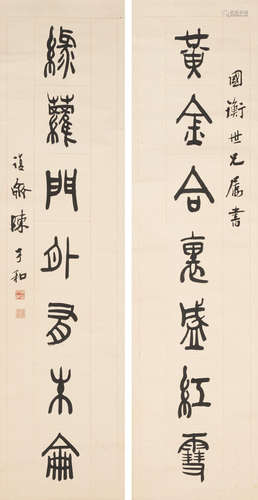 國衡世兄屬書
黃金合裏盛紅雪
綠蘿門外有朱侖
陳子和